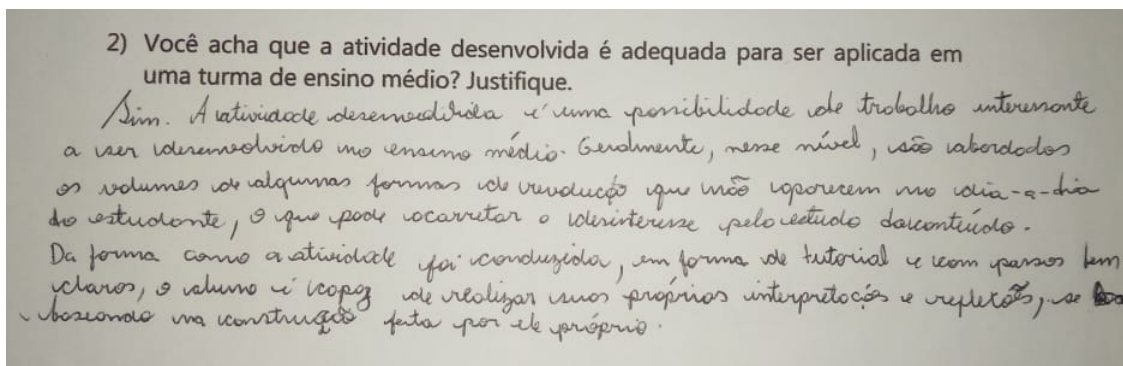 2) Você acha que a atividade desenvolvida é adequada para ser aplicada em
uma turma de ensino médio? Justifique.
Sim. A atividade desenvolvida é uma possibilidade de trabalho interessante
a ser desenvolvido no ensino médio. Geralmente, nesse nível, são abordados
os volumes de algumas formas de revolução que não aparecem no dia-a-dia
do estudante, o que pode acarretar o desinteresse pelo estudo do conteúdo.
Da forma como a atividade foi conduzida, em forma de tutorial e com passos bem
claros, o aluno é capaz de realizar suas próprias interpretações e reflexões, se
baseando na construção feita por ele próprio.